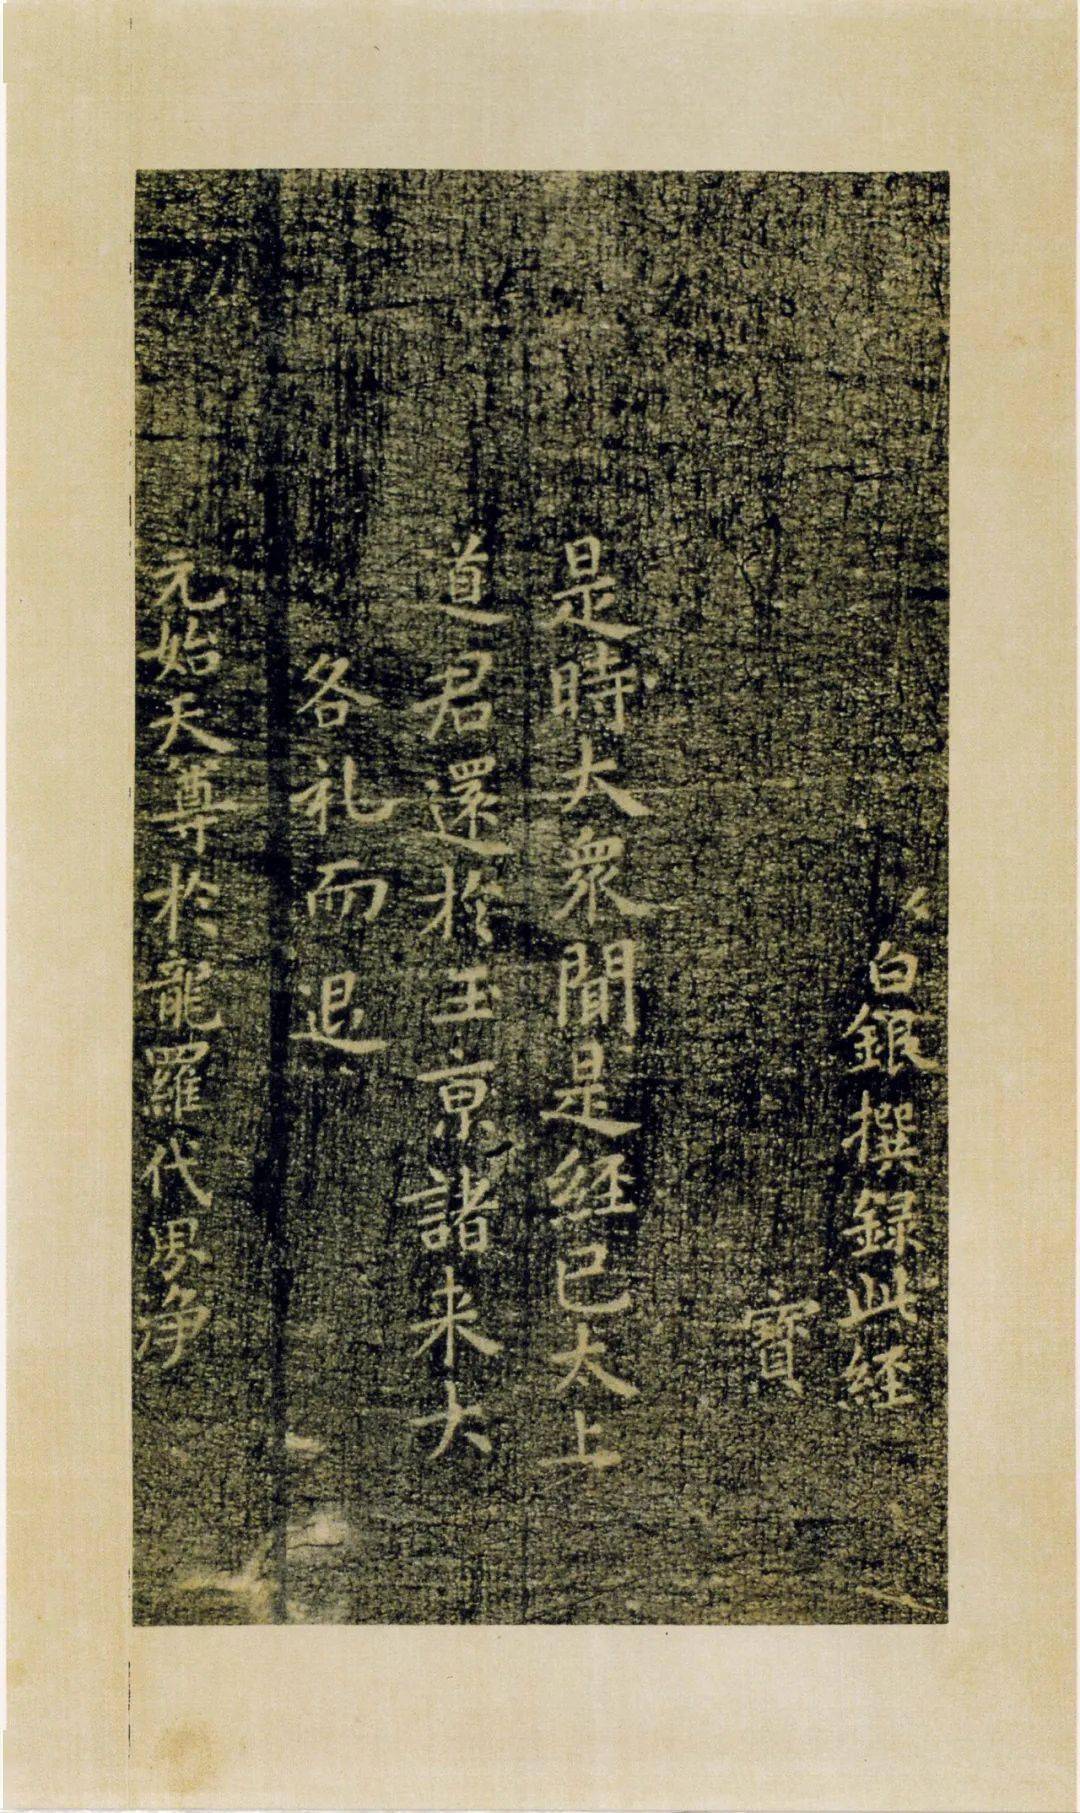 白銀撰録此経
寶
是時大衆聞是経已太上
道君還於玉京諸来大
各礼而退
元始天尊於龍羅代男浄